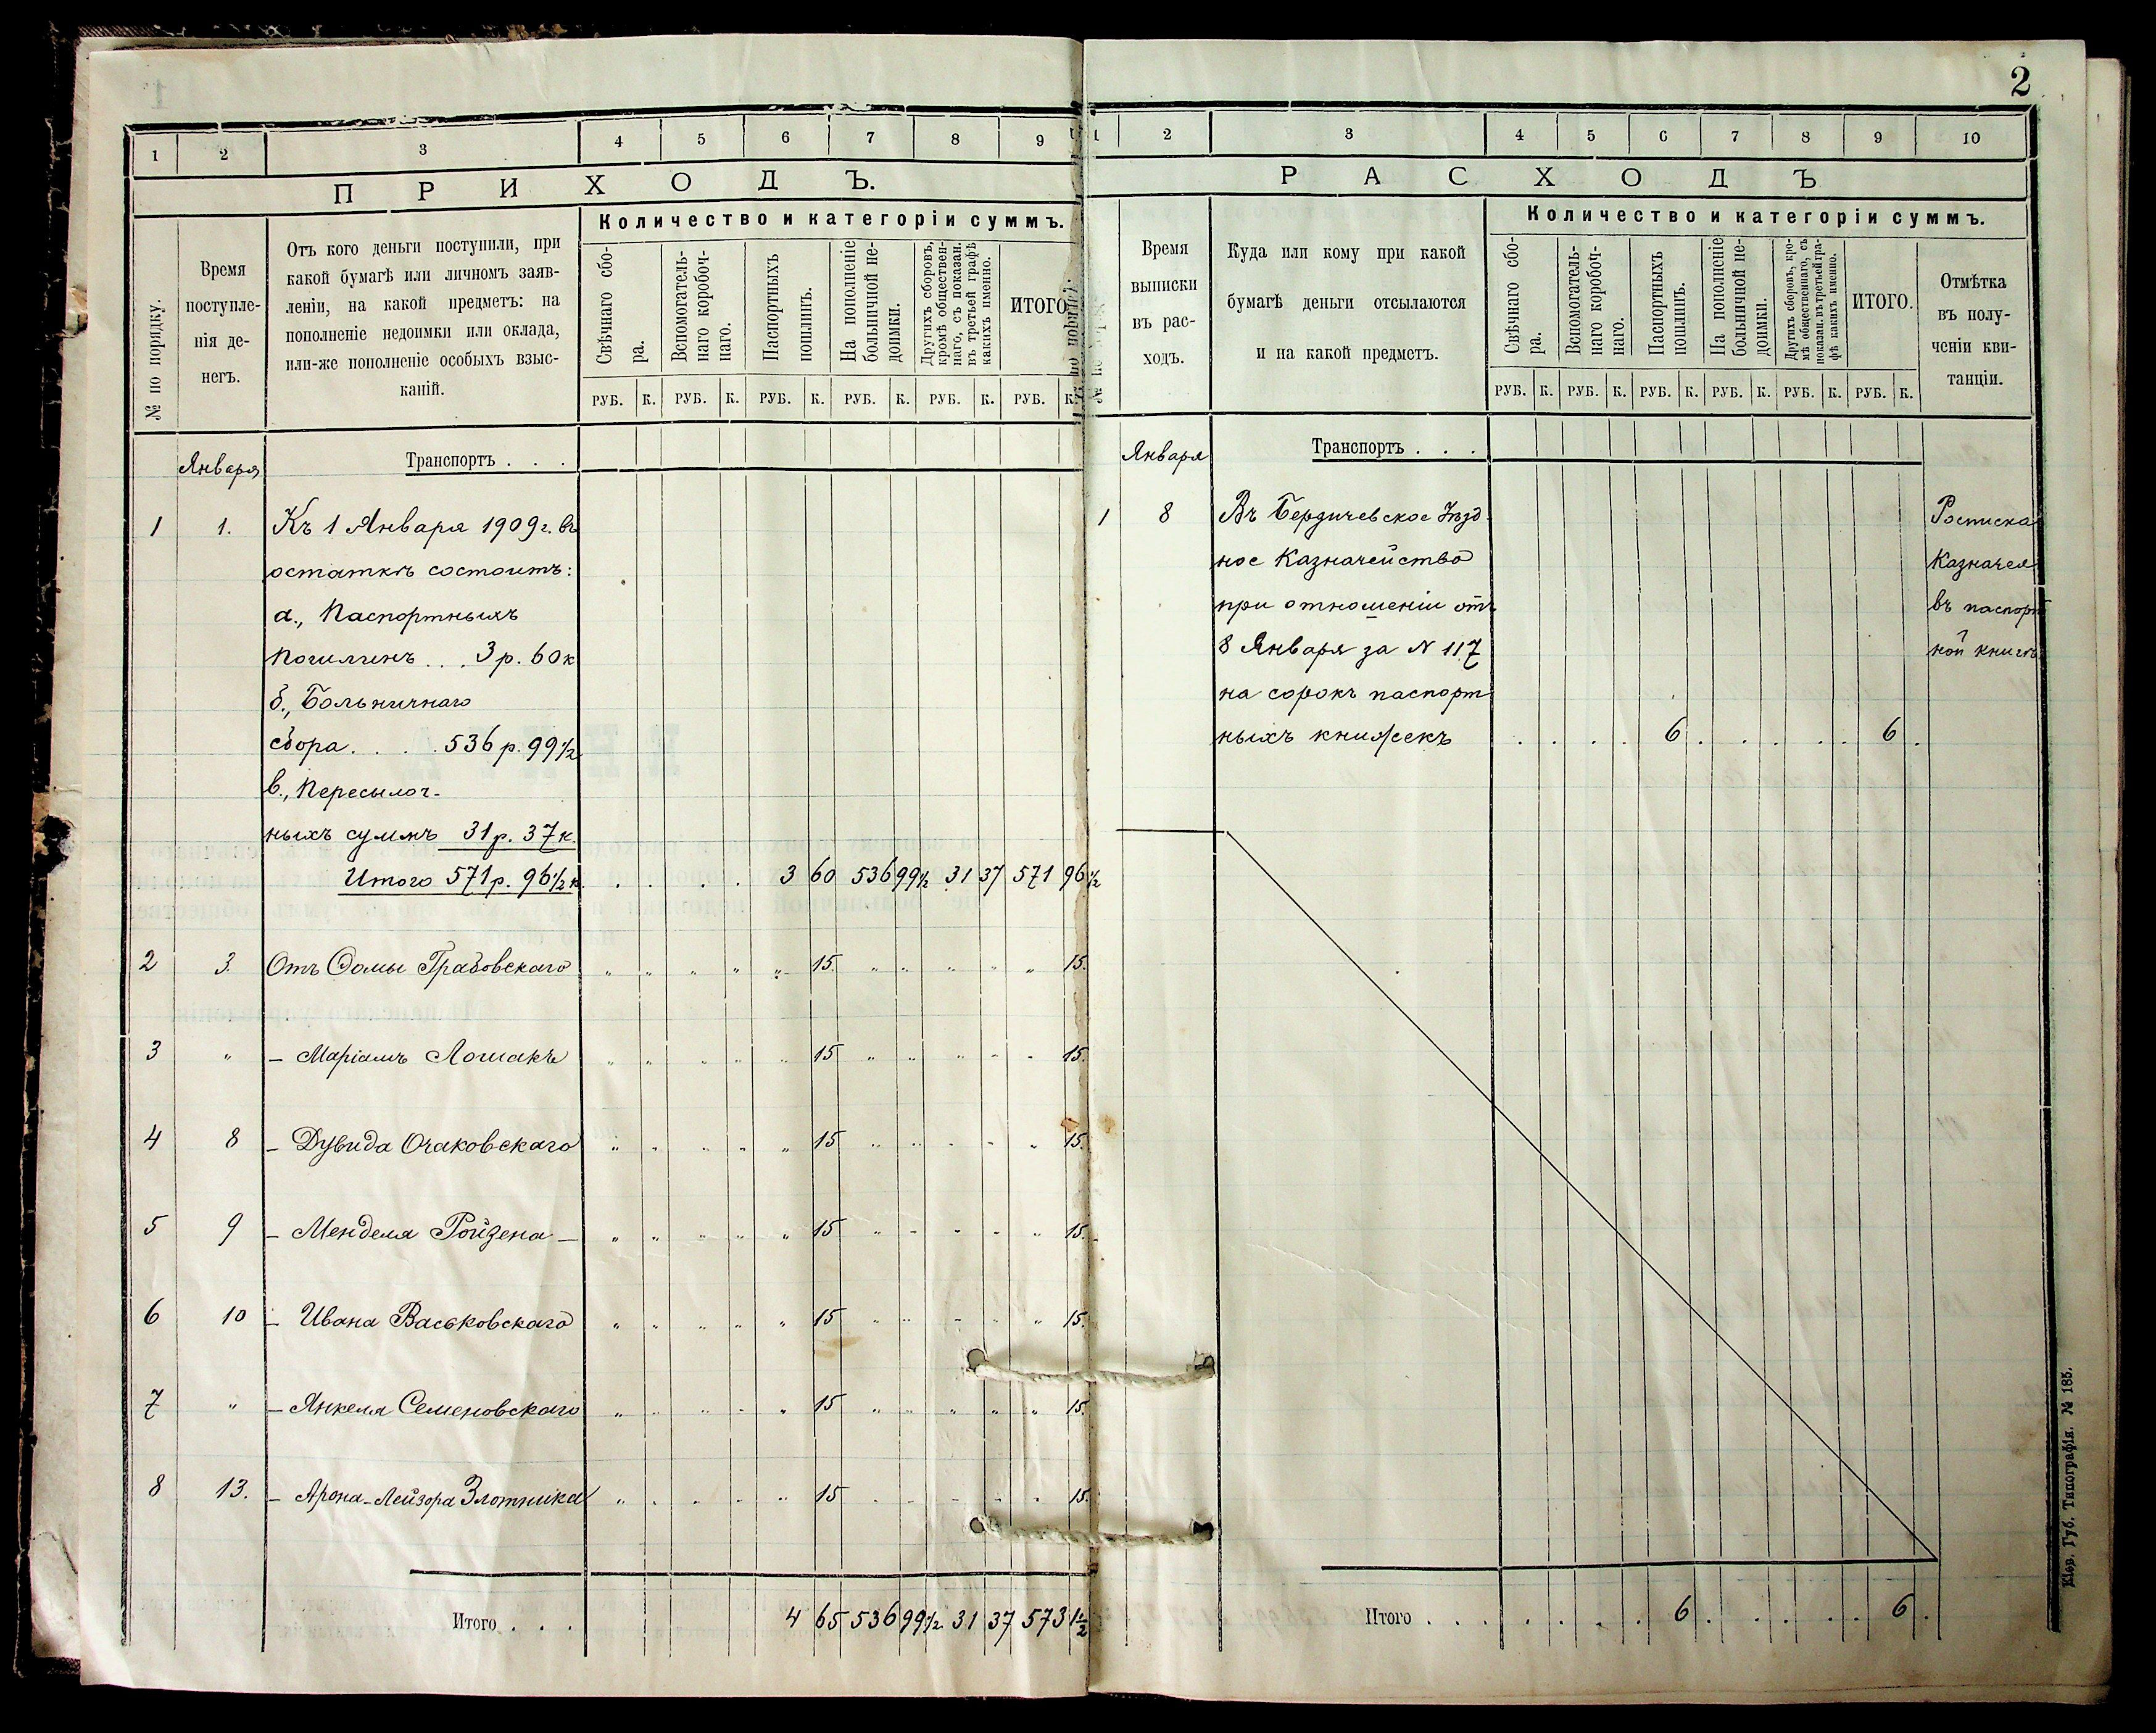 2
1 2 3 4 5 6 7 8 9
ПРИХОДЪ.
№ по порядку.
Время
поступле-
нія де-
негъ.
Отъ кого деньги поступили, при
какой бумагѣ или личномъ заяв-
леніи, на какой предметъ: на
пополненіе недоимки или оклада,
или-же пополненіе особыхъ взыс-
каній.
Количество и категоріи суммъ.
Свѣчнаго сбо-
ра.
Вспомогатель-
наго коробоч-
наго.
Паспортныхъ
пошлинъ.
На пополненіе
больничной не-
доимки.
Другихъ сборовъ,
кромѣ обществен-
наго, съ показан.
въ третьей графѣ
какихъ именно.
ИТОГО
РУБ. К. РУБ. К. РУБ. К. РУБ. К. РУБ. К. РУБ. К.
Января Транспортъ . . .
1 1. Къ 1 Января 1909 г. въ
остаткѣ состоитъ:
а., Паспортныхъ
пошлинъ . . . 3 р. 60 к
б., Больничнаго
сбора . . . . 536 р. 99 1/2
в., Пересылоч-
ныхъ суммъ 31 р. 37 к.
Итого 571 р. 96 1/2 к. . . . . 3 60 536 99 1/2 31 37 571 96 1/2
2 3. Отъ Сомы Грабовскаго " " " " " 15. " " " " " 15.
3 " – Маріамъ Лошакъ " " " " " 15 " " " " " 15.
4 8 – Дувида Очаковскаго " " " " " 15 " " " " " 15.
5 9 – Менделя Ройзена – " " " " " 15 " " " " " 15.
6 10 – Ивана Васьковскаго " " " " " 15 " " " " " 15.
7 " – Янкеля Семеновскаго " " " " " 15 " " " " " 15.
8 13. – Арона-Лейзора Злотника " " " " " 15 " " " " " 15.
Итого . . . 4 65 536 99 1/2 31 37 573 1 1/2
1 2 3 4 5 6 7 8 9 10
РАСХОДЪ
Время
выписки
въ рас-
ходъ.
Куда или кому при какой
бумагѣ деньги отсылаются
и на какой предметъ.
Количество и категоріи суммъ.
Свѣчнаго сбо-
ра.
Вспомогатель-
наго коробоч-
наго.
Паспортныхъ
пошлинъ.
На пополненіе
больничной не-
доимки.
Другихъ сборовъ, кро-
мѣ общественнаго, съ
показан. въ третьей гра-
фѣ какихъ именно.
ИТОГО.
Отмѣтка
въ полу-
ченіи кви-
танціи.
РУБ. К. РУБ. К. РУБ. К. РУБ. К. РУБ. К. РУБ. К.
Января Транспортъ . . .
1 8 Въ Бердичевское Уѣзд- Росписка
ное Казначейство Казначея
при отношеніи отъ въ паспорт
8 Января за N 117 ной книгѣ
на сорокъ паспорт
ныхъ книжекъ . . . . 6 . . . . . 6 .
Итого . . . . . . . 6 . . . . . 6 .
Кіев. Губ. Типографія. № 185.